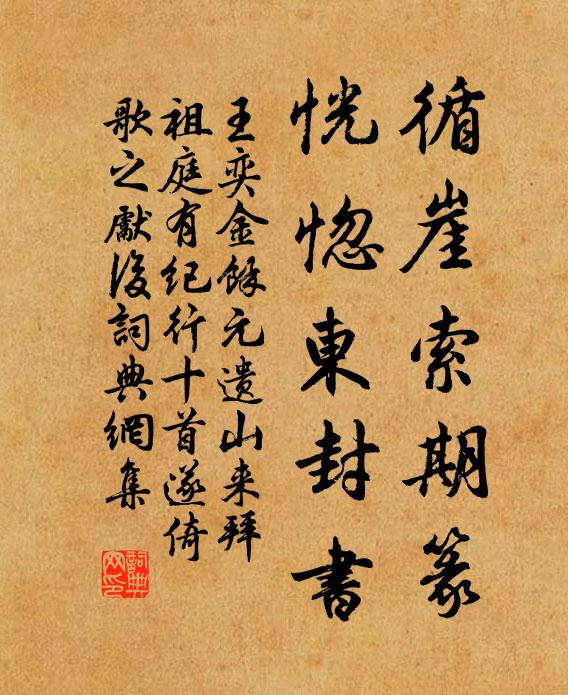 循崖索期篆
恍惚東封書
王奕金餘元遺山来拜
祖庭有紀行十首遂倚
歌之獻後詞典網集
詞典网印